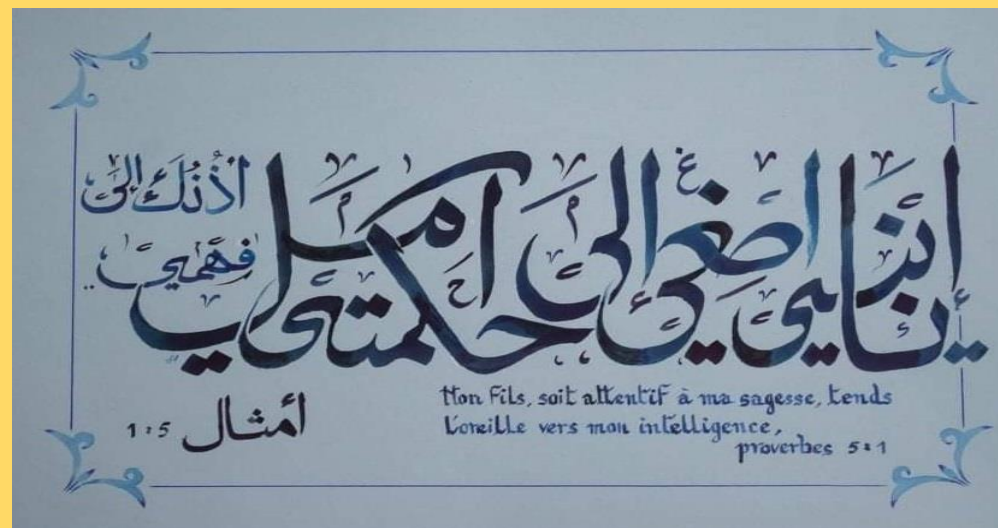 يا ابني اصغي إلى حكمتي امل
أُذُنَكَ إِلَى
فهمي
أمثال 1:5
Mon Fils, soit attentif à ma sagesse, tends
L'oreille vers mon intelligence,
proverbes 5:1